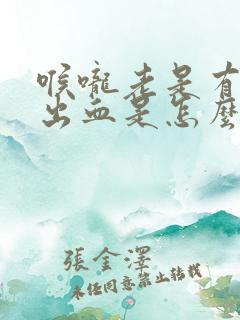 喉嚨老是有
出血是怎麼
張金澤
未經同意禁止轉載